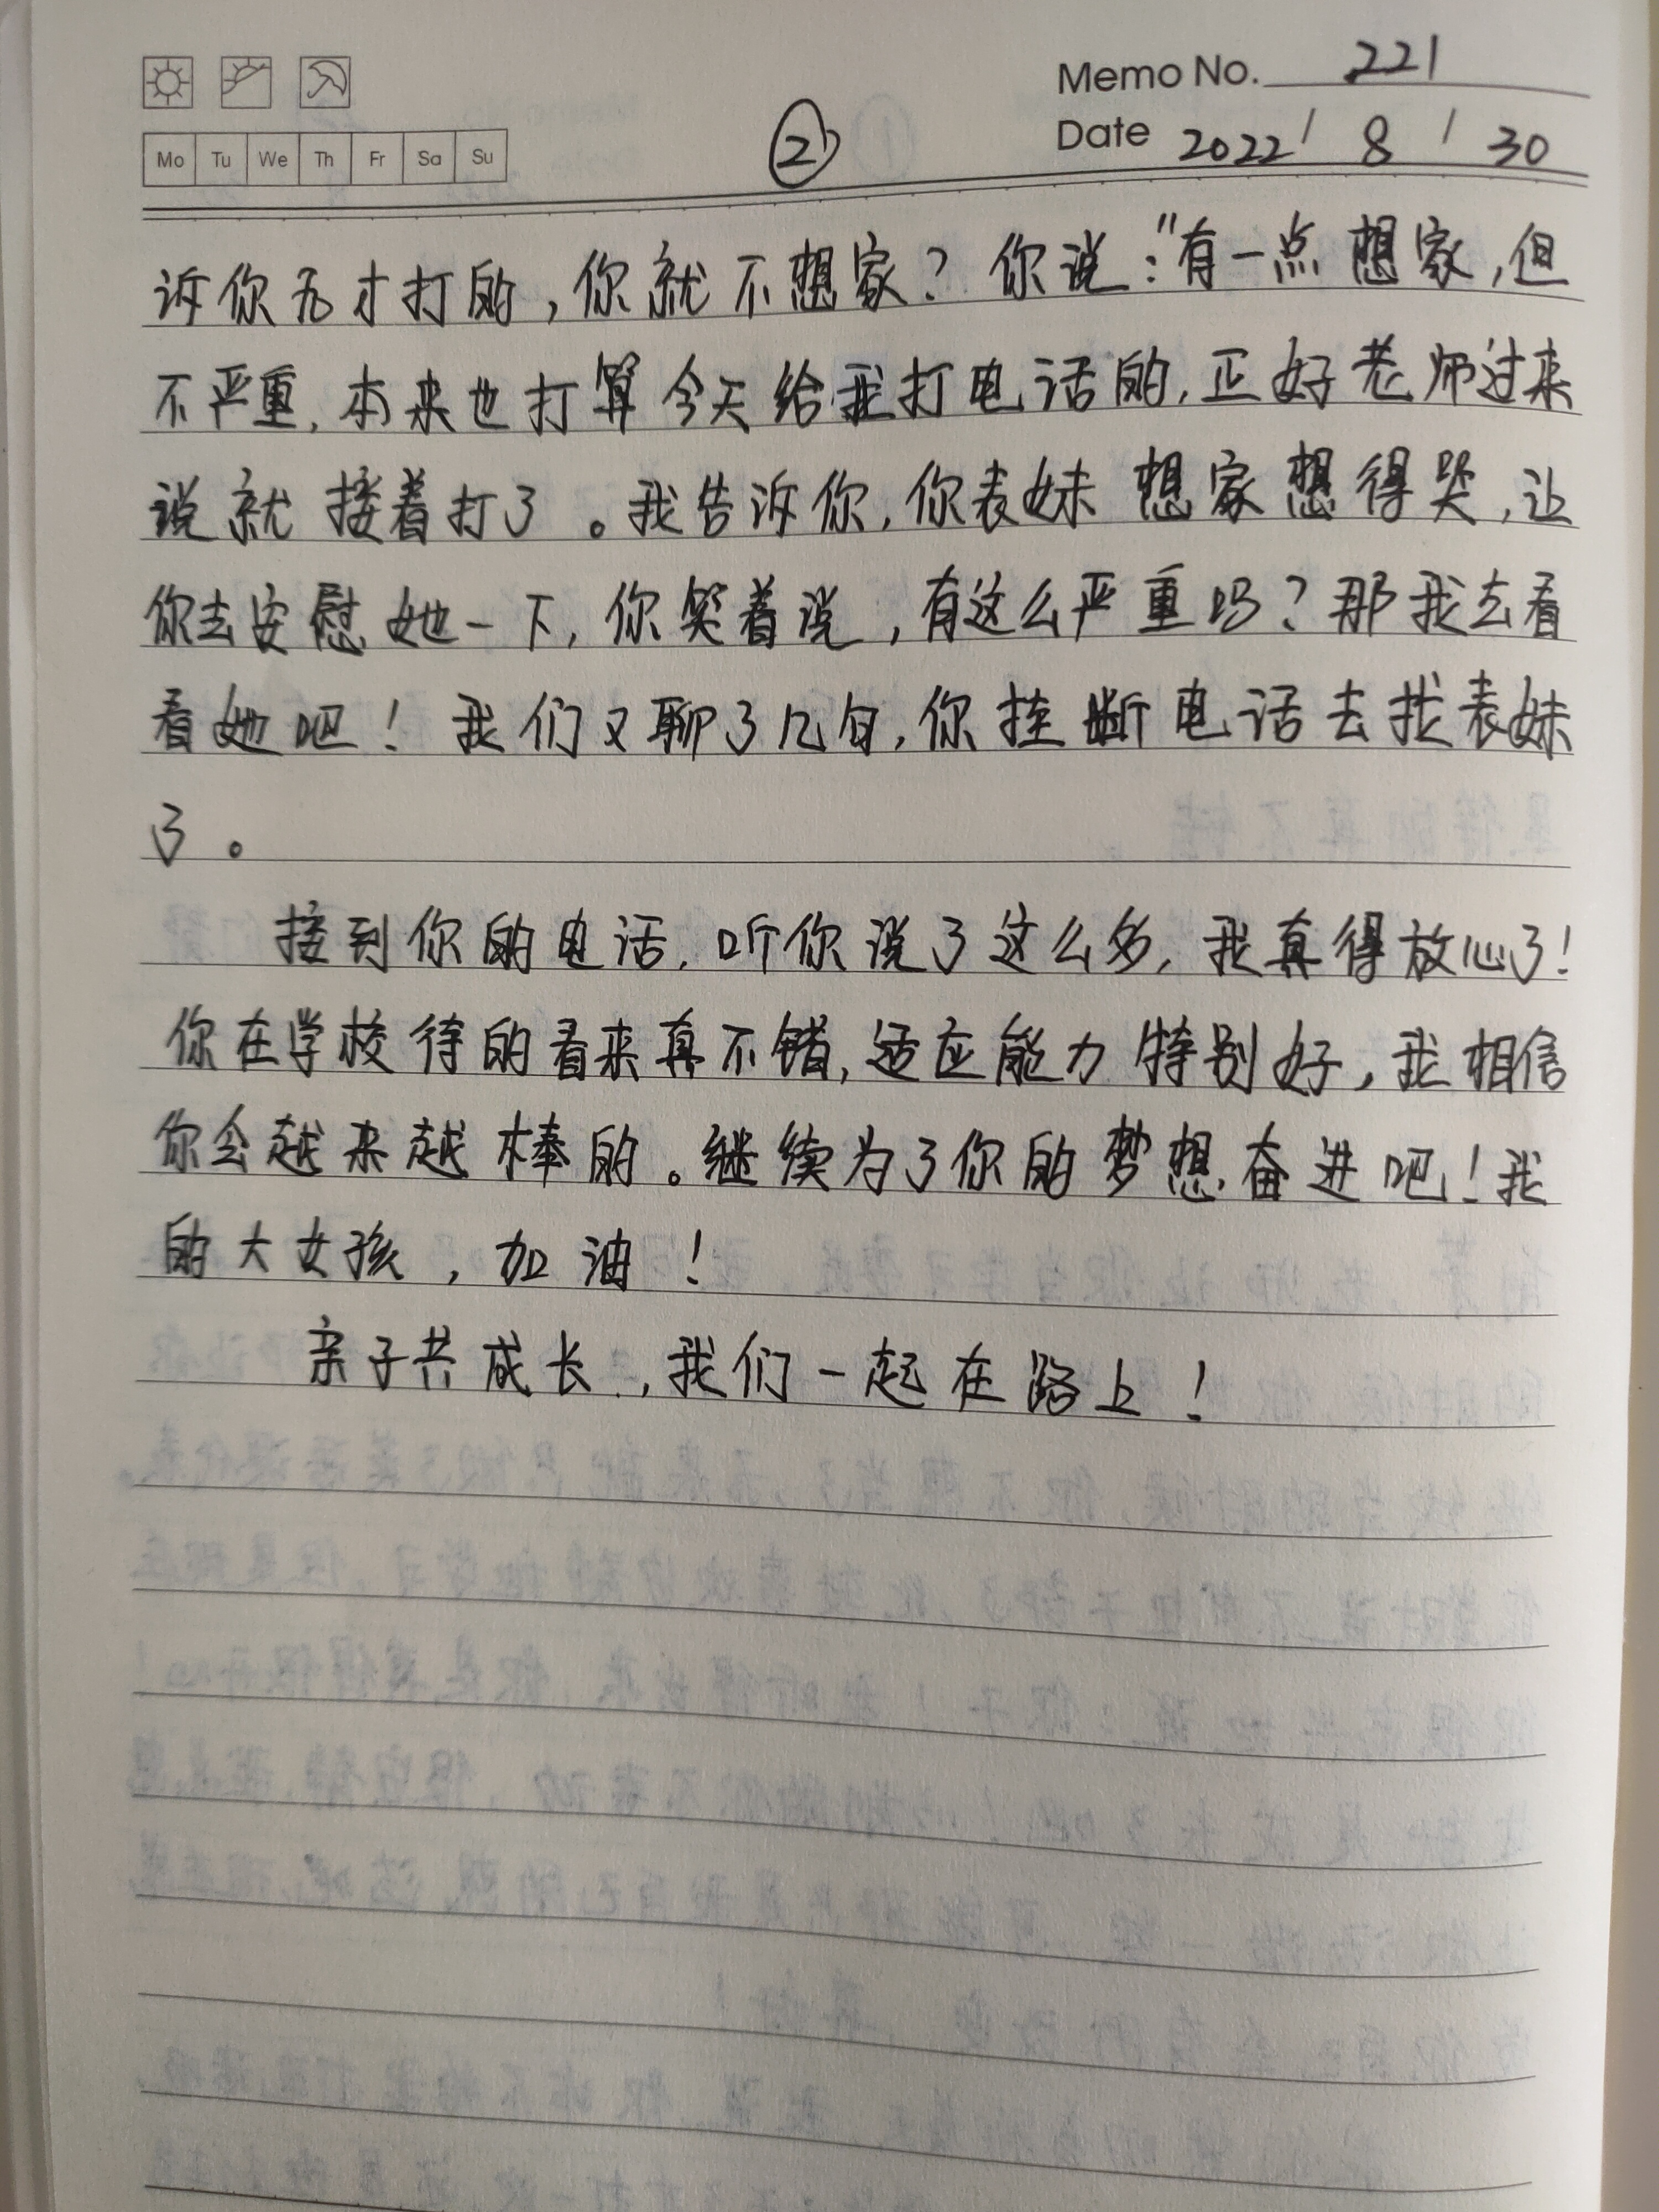 Memo No. 221
Mo Tu We Th Fr Sa Su
②
Date 2022/8/30
诉你才打的,你就不想家?你说:"有一点想家,但
不严重,本来也打算今天给我打电话的,正好老师过来
说就接着打了。我告诉你,你表妹想家想得哭,让
你去安慰她一下,你笑着说,有这么严重吗?那我去看
看她吧!我们又聊了几句,你挂断电话去找表妹
了。
接到你的电话,听你说了这么多,我真得放心了!
你在学校待的看来真不错,适应能力特别好,我相信
你会越来越棒的。继续为了你的梦想奋进吧!我
的大女孩,加油!
亲子共成长,我们一起在路上!